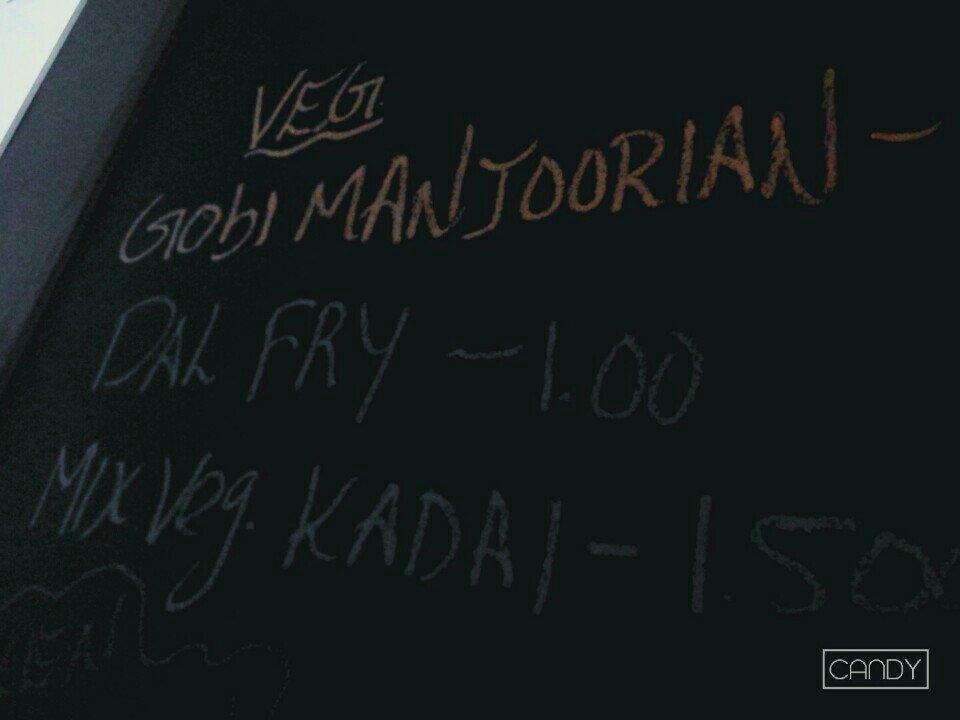 VEG.
GObI MANJOORIAN –
DAL FRY – 1.00
MIX Veg. KADAI – 1.500
CANDY